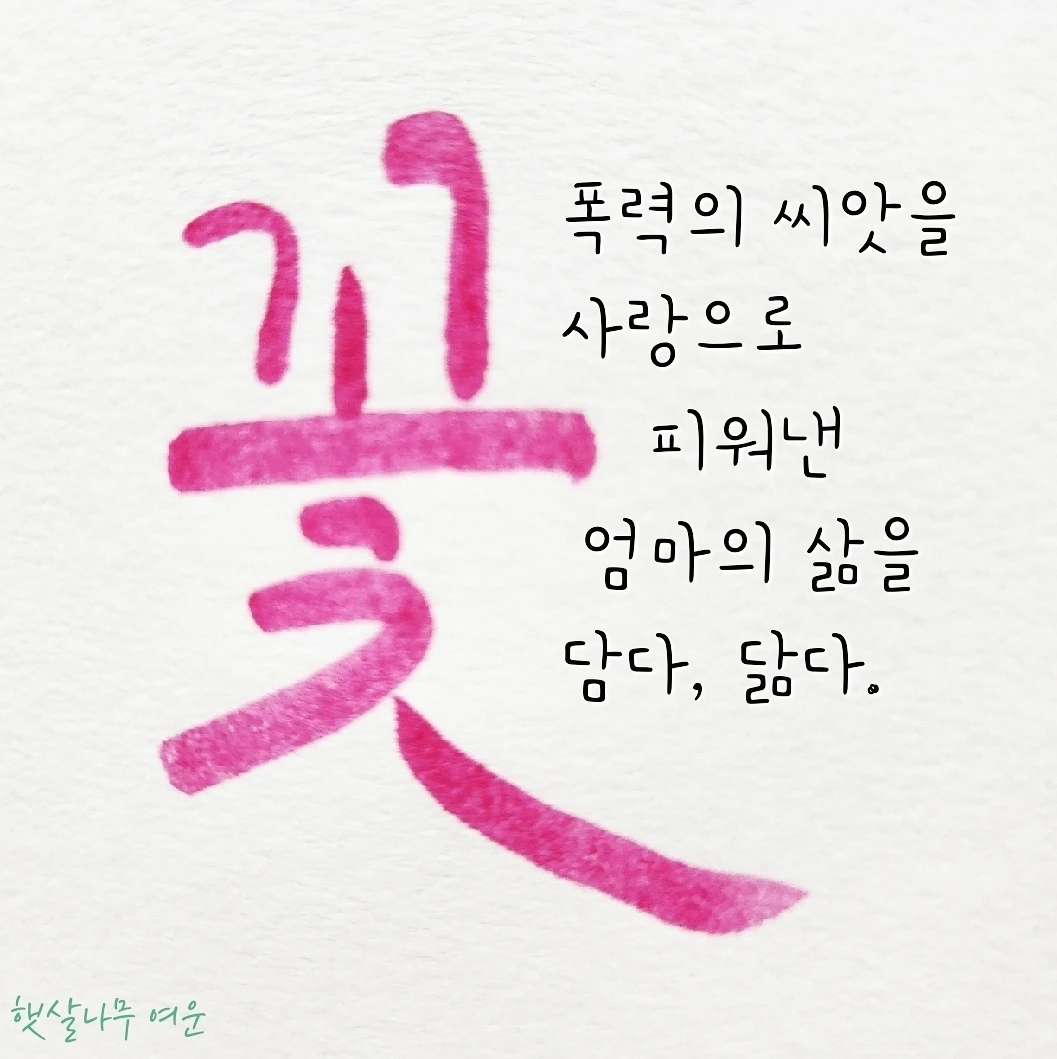 꽃
폭력의 씨앗을
사랑으로
피워낸
엄마의 삶을
담다, 닮다.
햇살나무 여운